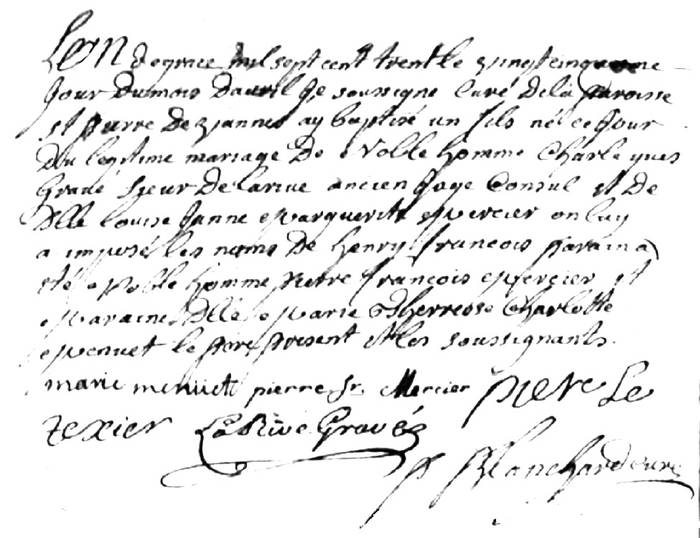 Lan de grace mil sept cent trente le vingt cinquieme
jour du mois davril Je soussigne curé de la paroisse
st pierre de vannes ay baptisé un fils né ce jour
du legitime mariage de Noble homme Charle
Gravé Sieur de larive ancien juge Consul et de
dlle louise janne Marguerite Mercier on luy
a imposé les noms de henry francois parain a
eté Noble homme pierre francois Mercier et
Maraine dlle Marie therese Charlotte
Menuet le pere present et les soussignants.
marie menuet pierre fr. Mercier piere Le
texier La Rive Gravé
P Blanchard cure